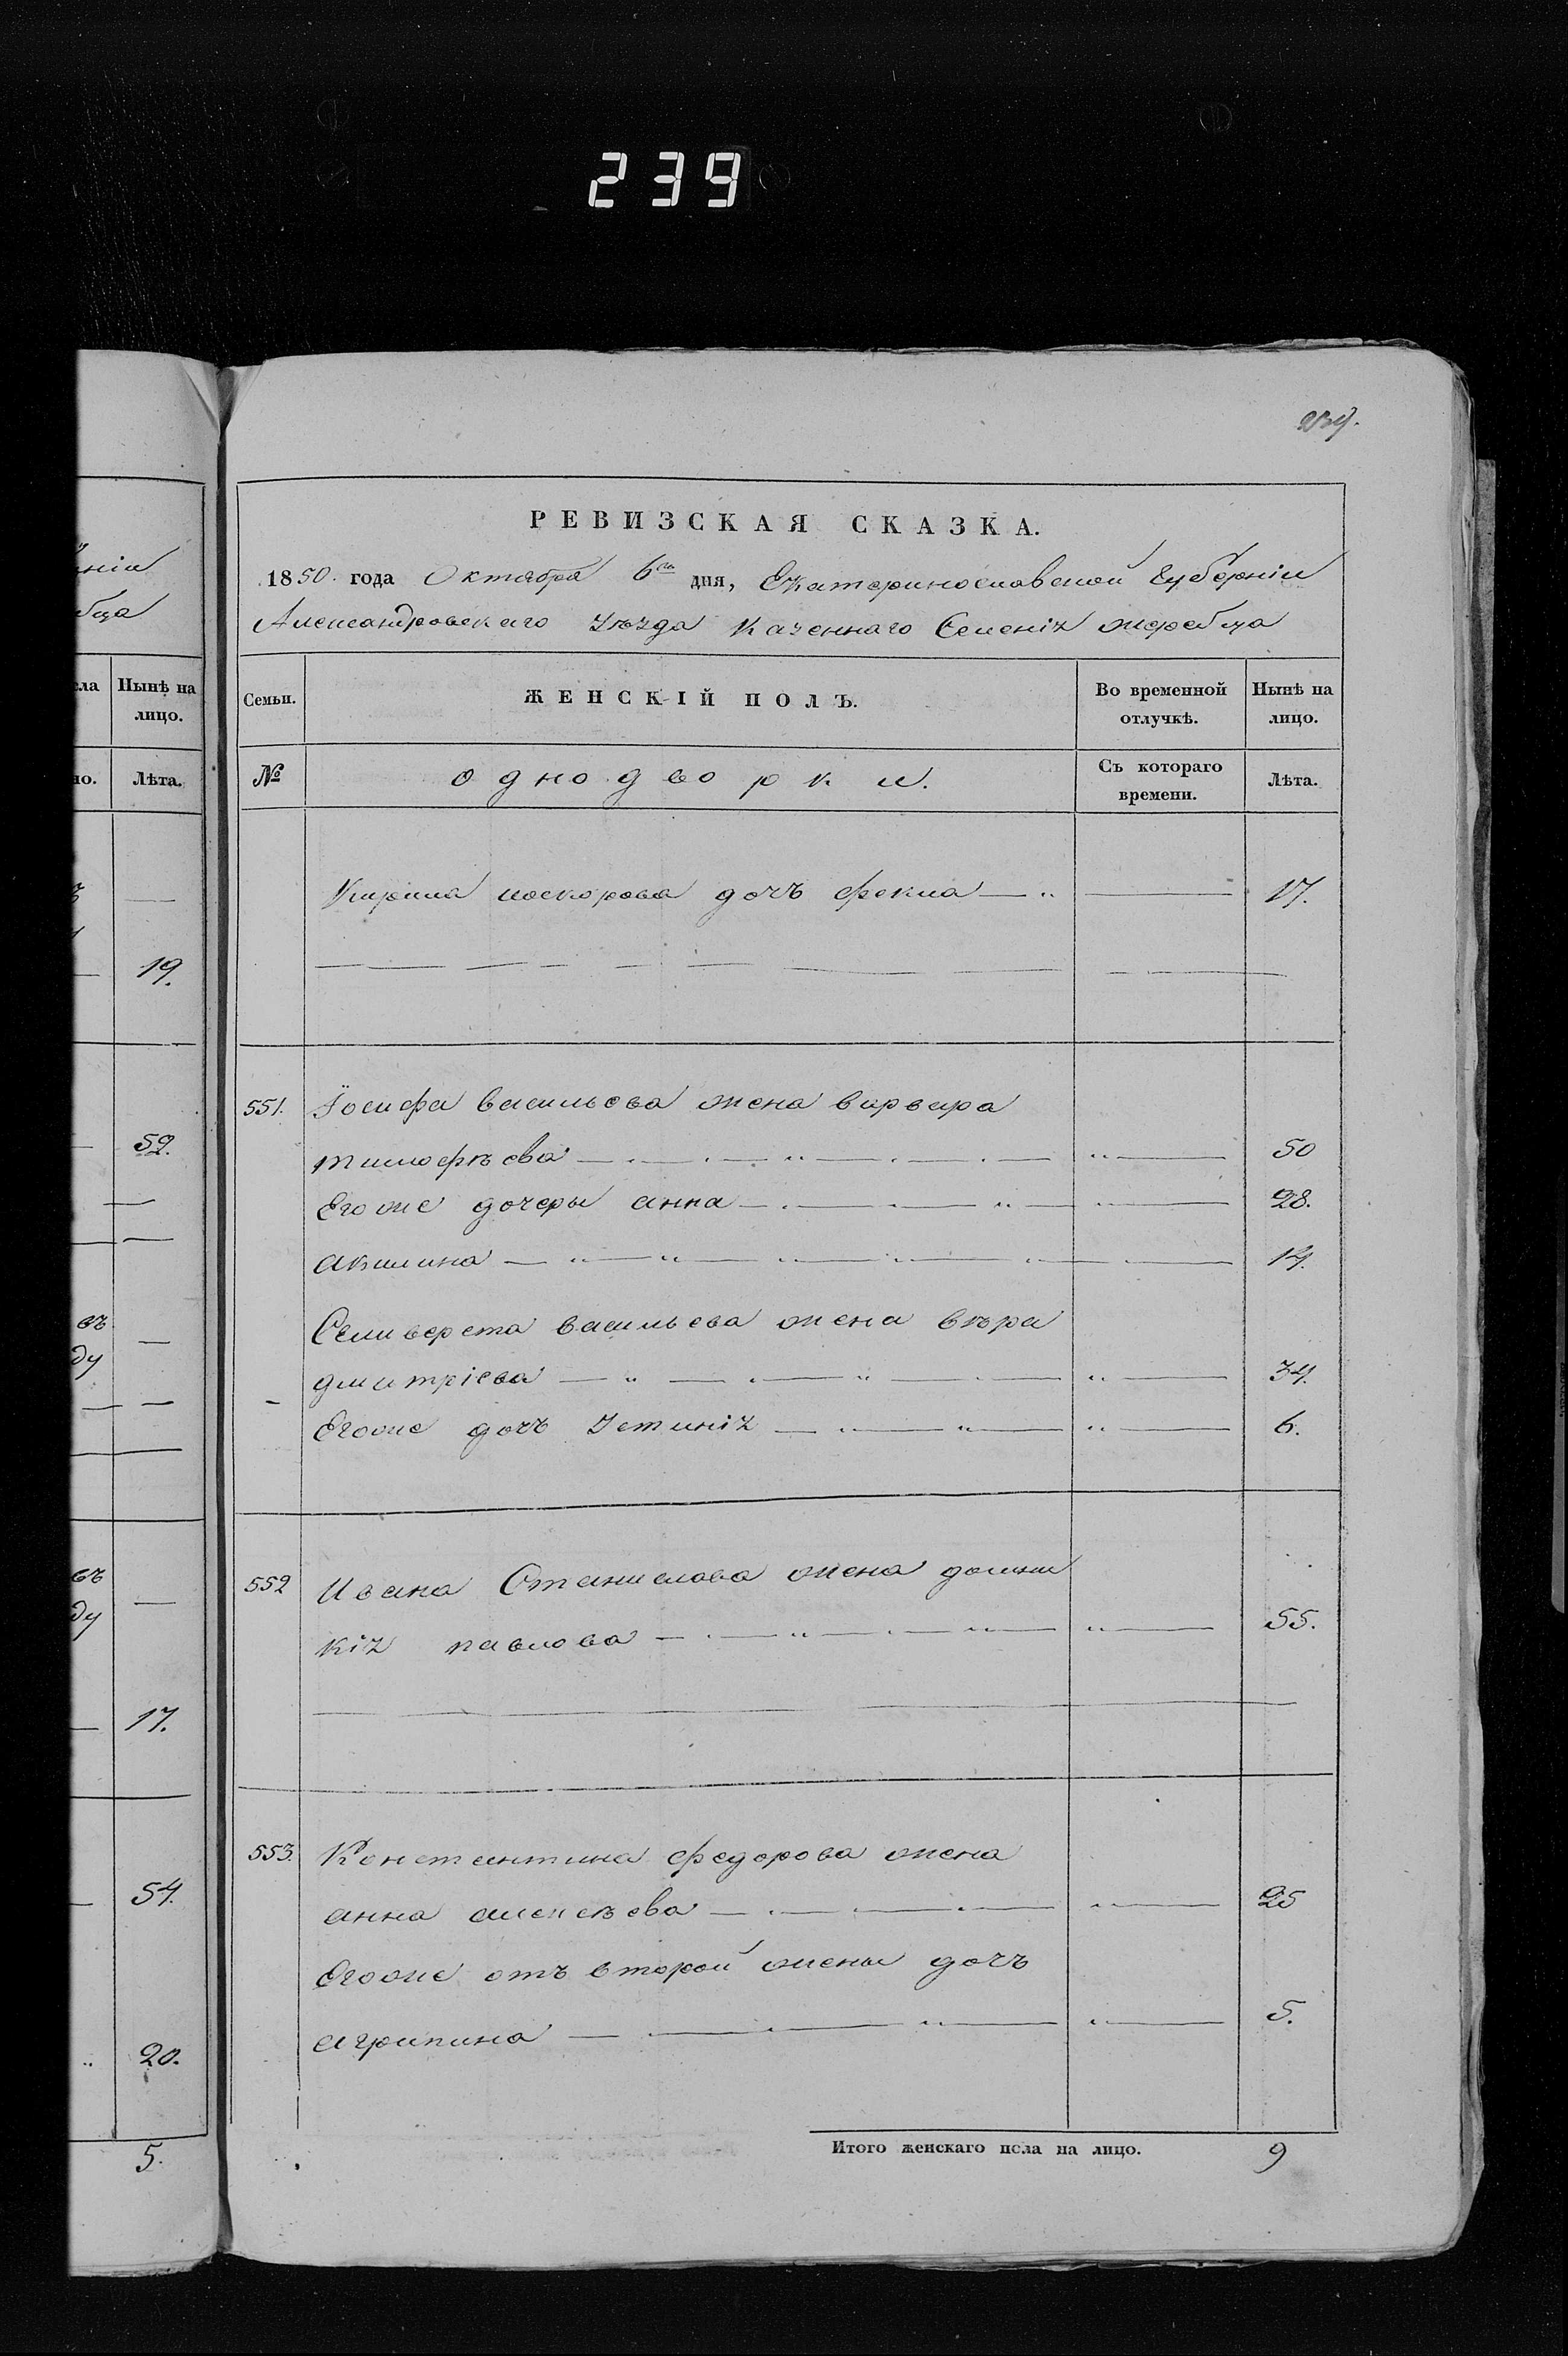 239
239.
ніи
бца
ла
Нынѣ на
лицо.
но.
Лѣта.
19.
52.
въ
ду
въ
ду
17.
54.
20.
5.
РЕВИЗСКАЯ СКАЗКА.
1850. года Октября 6го дня, Екатеринославской Губерніи
Александровскаго уѣзда казеннаго Селенія жеребца
Семьи.
ЖЕНСКІЙ ПОЛЪ.
Во временной
отлучкѣ.
Нынѣ на
лицо.
№
однодворки.
Съ котораго
времени.
Лѣта.
Кирила дочь фекла — 17.
551. Іосифа васильева жена варвара
тимофѣева — 50
Его же дочеры анна — 28.
акилина — 14.
Селиверста васильева жена вѣра
дмитріева — 34.
Егоже дочь Устинія — 6.
552 Ивана Станислава жена домни
кія павлова — 55.
553. Констянтина федорова жена
анна алексѣева — 25
Егоже отъ второй жены дочь
агрипина — 5.
Итого женскаго пола на лицо. 9